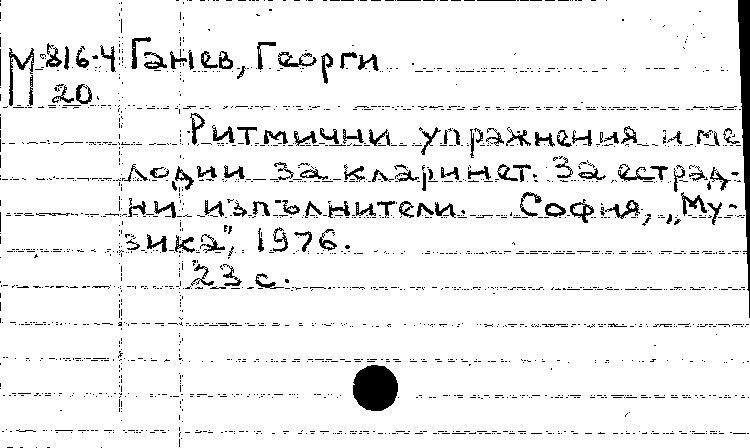 М 816·4 Ганев, Георги
20.
Ритмични упражнения и ме
лодии за кларинет. За естрад-
ни изпълнители. София, „Му-
зика", 1976.
23 с.